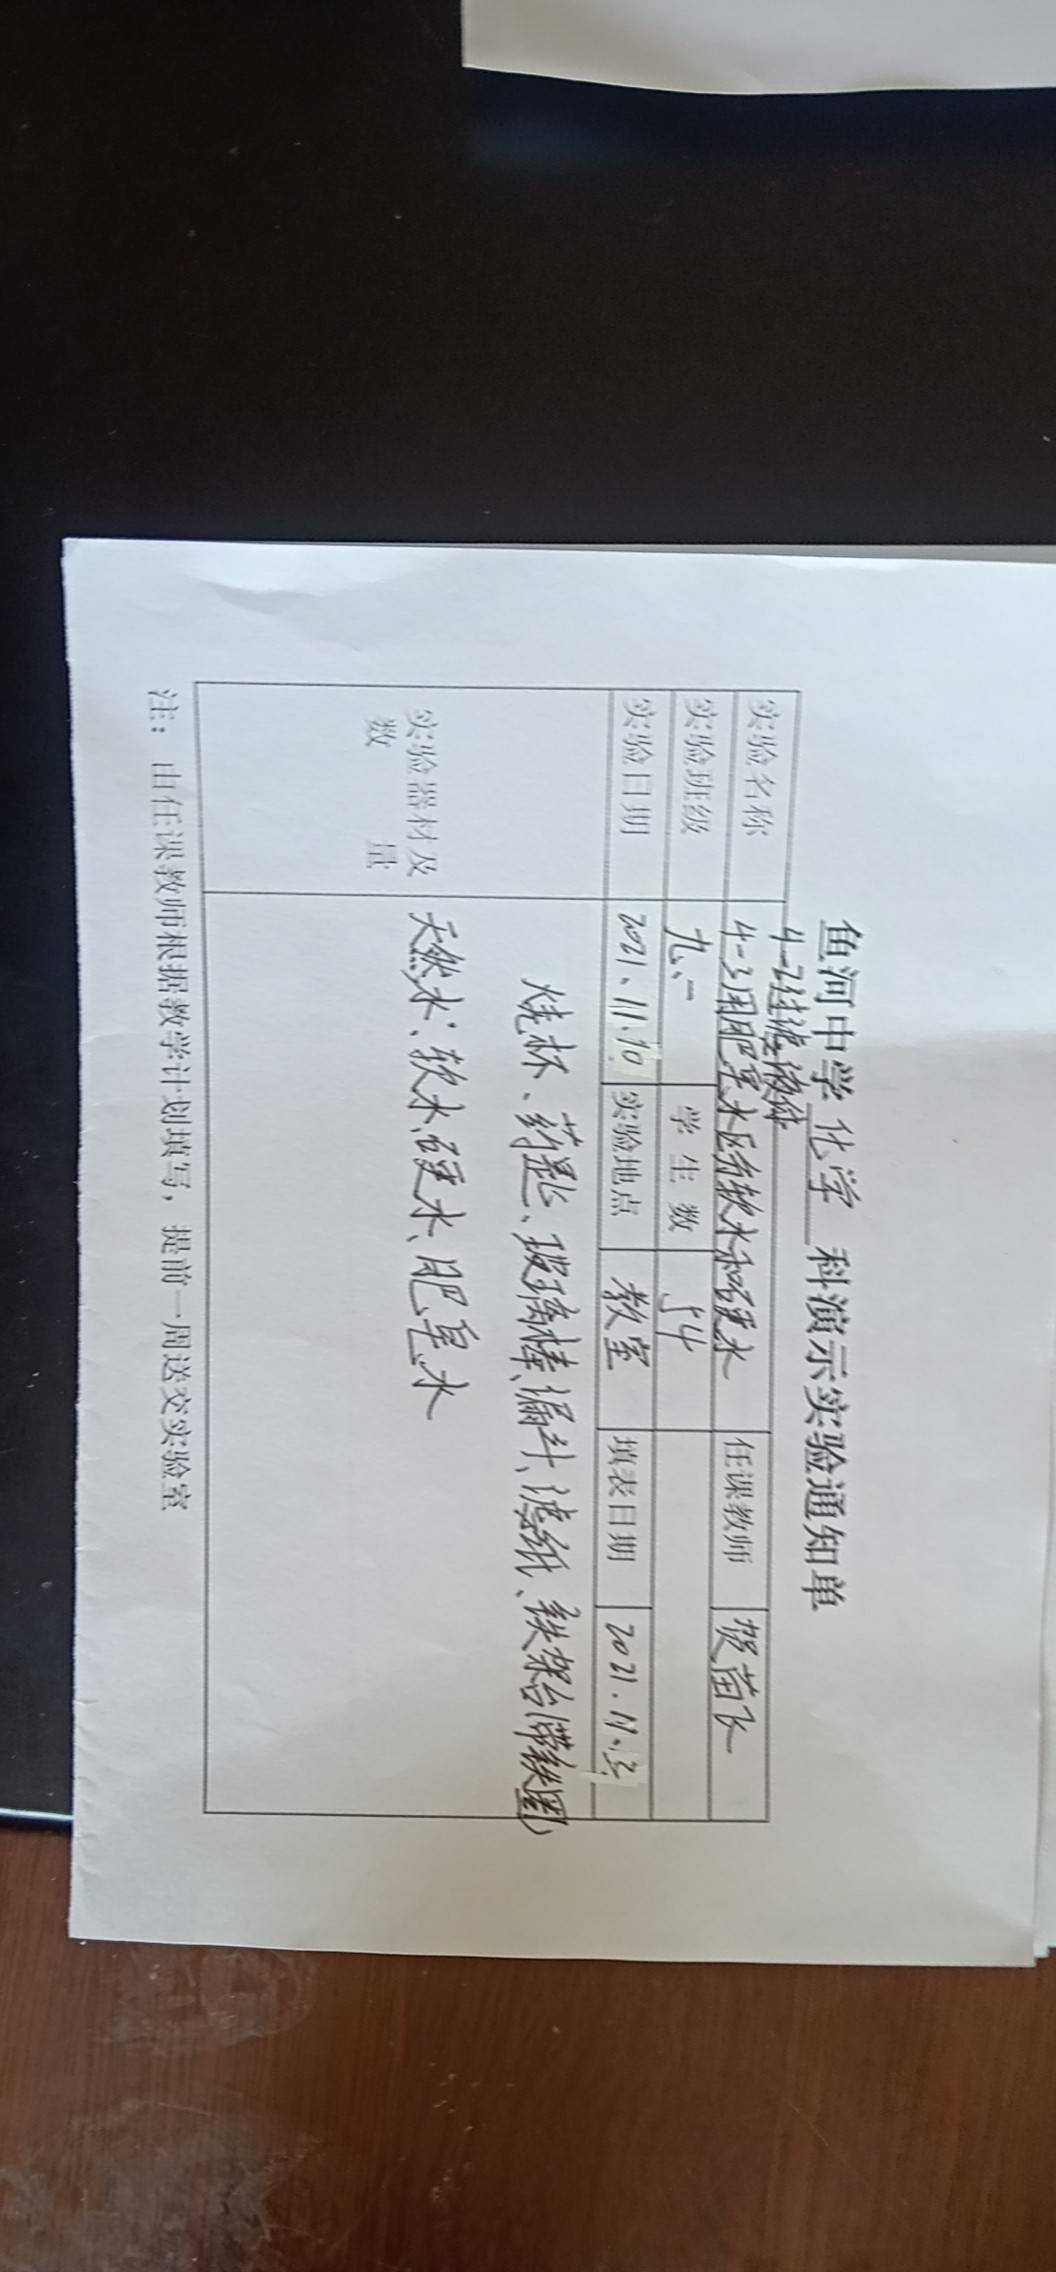 鱼河中学 化学 科演示实验通知单
4-2过滤液体
实验名称 4-3用肥皂水区分软水和硬水 任课教师 贺苗飞
实验班级 九、二 学生数 54
实验日期 2021、11.10 实验地点 教室 填表日期 2021.11.3
烧杯、药匙、玻璃棒、漏斗、滤纸、铁架台(带铁圈)
实验器材及 天然水、软水、硬水、肥皂水
数 量
注：由任课教师根据教学计划填写，提前一周送交实验室